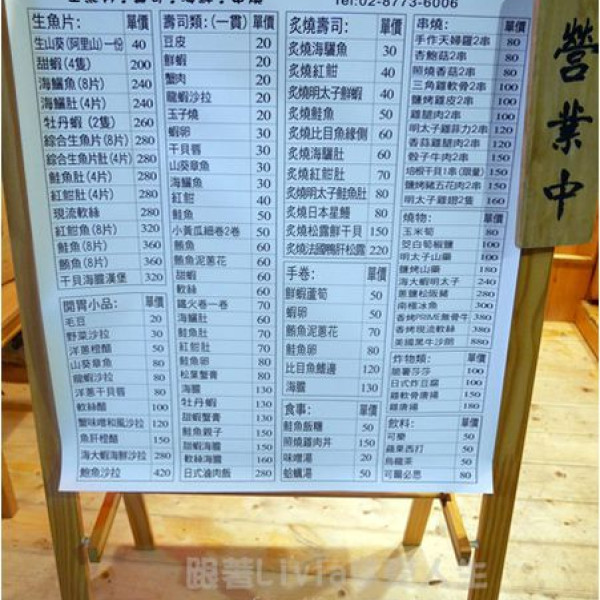 Tel:02-8773-6006
營業中
生魚片: 單價
生山葵(阿里山)一份 40
甜蝦(4隻) 200
海鱺魚(8片) 240
海鱺肚(4片) 240
牡丹蝦(2隻) 260
綜合生魚片(8片) 280
綜合生魚片肚(4片) 280
鮭魚肚(4片) 280
紅魽肚(4片) 280
現流軟絲 280
紅魽魚(8片) 320
鮭魚(8片) 360
鮪魚(8片) 360
干貝海膽漢堡 320
開胃小品: 單價
毛豆 20
野菜沙拉 30
洋蔥橙醋 50
山葵章魚 80
龍蝦沙拉 80
洋蔥干貝唇 80
軟絲醋 100
蟹味噌和風沙拉 120
魚肝橙醋 150
海大蝦海鮮沙拉 220
鮑魚沙拉 420
壽司類:(一貫) 單價
豆皮 20
鮮蝦 20
蟹肉 20
龍蝦沙拉 20
玉子燒 20
蝦卵 30
干貝唇 30
山葵章魚 30
海鱺魚 30
紅魽 40
鮭魚 50
小黃瓜細卷2卷 50
鮪魚 60
鮪魚泥蔥花 60
甜蝦 60
軟絲 60
鐵火卷一卷 70
海鱺肚 60
鮭魚肚 70
紅魽肚 70
鮭魚卵 80
松葉蟹膏 80
海膽 130
牡丹蝦 130
甜蝦蟹膏 130
鮭魚親子 150
甜蝦海膽 150
軟絲海膽 160
日式滷肉飯 280
炙燒壽司: 單價
炙燒海鱺魚 30
炙燒紅魽 40
炙燒明太子鮮蝦 40
炙燒鮭魚 50
炙燒比目魚緣側 60
炙燒海鱺肚 60
炙燒紅魽肚 70
炙燒明太子鮭魚肚 80
炙燒日本星鰻 80
炙燒松露鮮干貝 150
炙燒法國鴨肝松露 220
手卷: 單價
鮮蝦蘆筍 50
蝦卵 50
鮪魚泥蔥花 70
鮭魚卵 80
比目魚鰭邊 130
海膽 130
食事: 單價
鮭魚飯糰 50
照燒雞肉丼 150
味噌湯 20
蛤蠣湯 50
串燒: 單價
手作天婦羅2串 80
杏鮑菇2串 80
照燒香菇2串 80
三角雞軟骨2串 100
鹽烤雞皮2串 100
雞腿肉2串 100
明太子雞菲力2串 120
香蒜雞腿肉2串 120
骰子牛肉2串 150
培根干貝1串(限量) 150
鹽烤豬五花肉2串 150
明太子雞翅2隻 160
燒物: 單價
玉米筍 80
筊白筍椒鹽 100
明太子山藥 100
鹽烤山藥 180
海大蝦明太子 240
蔥鹽松阪豬 280
南極冰魚 300
香烤PRIME無骨牛 380
香烤現流軟絲 380
美國黑牛沙朗 880
炸物類: 單價
脆薯莎莎 100
日式炸豆腐 100
雞軟骨唐揚 150
雞唐揚 180
飲料: 單價
可樂 50
蘋果西打 50
烏龍茶 50
可爾必思 80
跟著Livia
人生